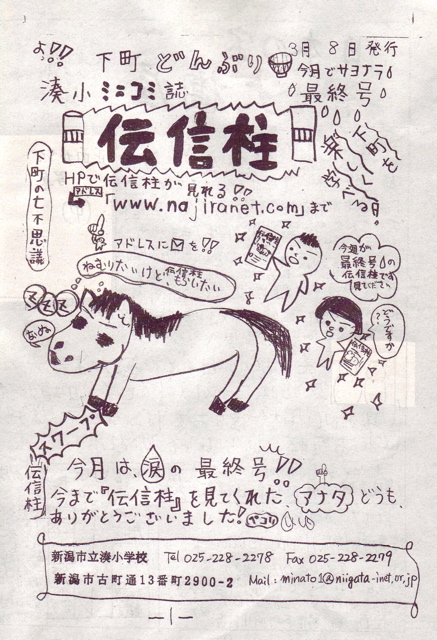 よぉ!!
下町 どんぶり
3月 8日 発行
湊小ミニコミ誌
今月でサヨナラ
最終号
伝信柱
下町を楽しく学べる!
下町の七不思議
HPで伝信柱が見れる!!
アドレス
「www.najiranet.com」まで
アドレスに を!!
ねむりたいけど伝信柱もらいたい
ZZZ
今回が最終号の伝信柱です見てください。
そうですか?
伝信柱
今月は、涙の最終号!!
今まで『伝信柱』を見てくれた アナタ どうも、
ありがとうございました! ペコリ
新潟市立湊小学校 Tel 025-228-2278 Fax 025-228-2279
新潟市古町通13番町2900-2 Mail:minato1@niigata-inet.or.jp
—1—